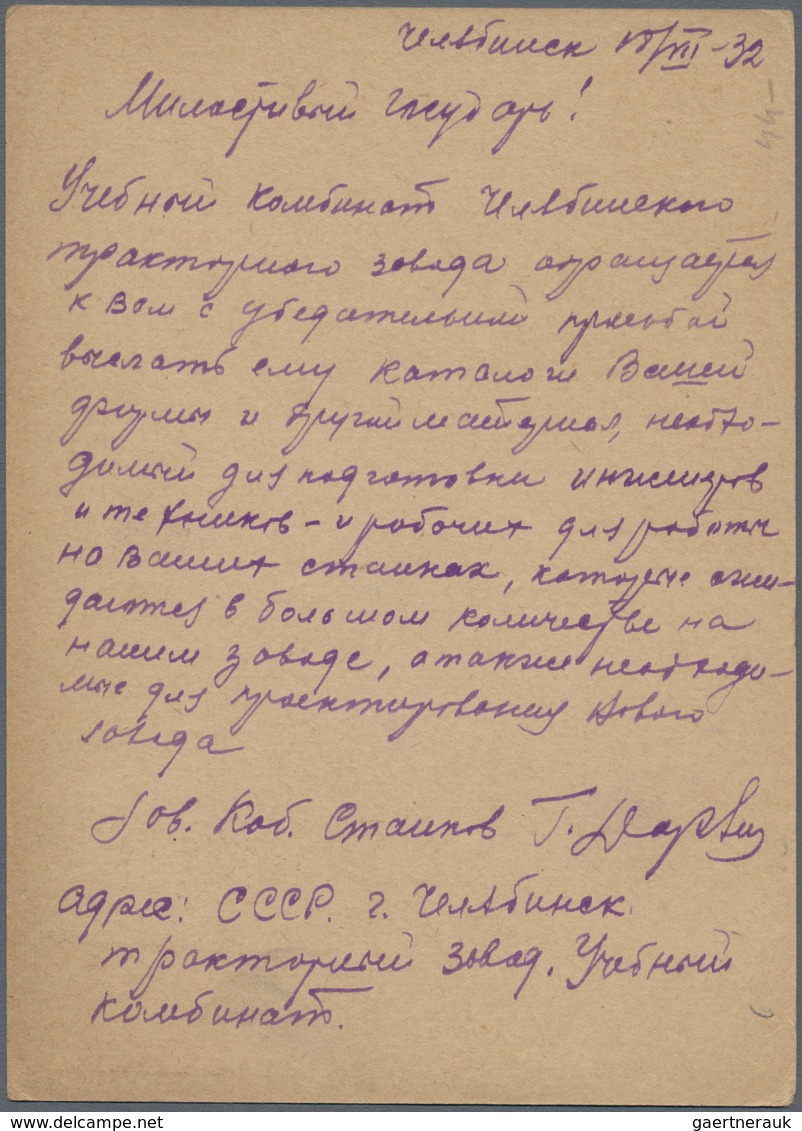 Челябинск /XII-32
Милостивый государь!
44-
Учебный комбинат Челябинского
тракторного завода обращается
к Вам с убедительной просьбой
выслать ему каталоги Вашей
фирмы и другой материал, необхо-
димый для подготовки инженеров
и техников - и рабочих для работы
на Ваших станках, которые ожи-
даются в большом количестве на
нашем заводе, а также необходи-
мые для проектирования нового
завода
Зав. Каб. Станков Г.
адрес: СССР. г. Челябинск
тракторный завод. Учебный
комбинат.
www.delcampe.net
gaertnerauk